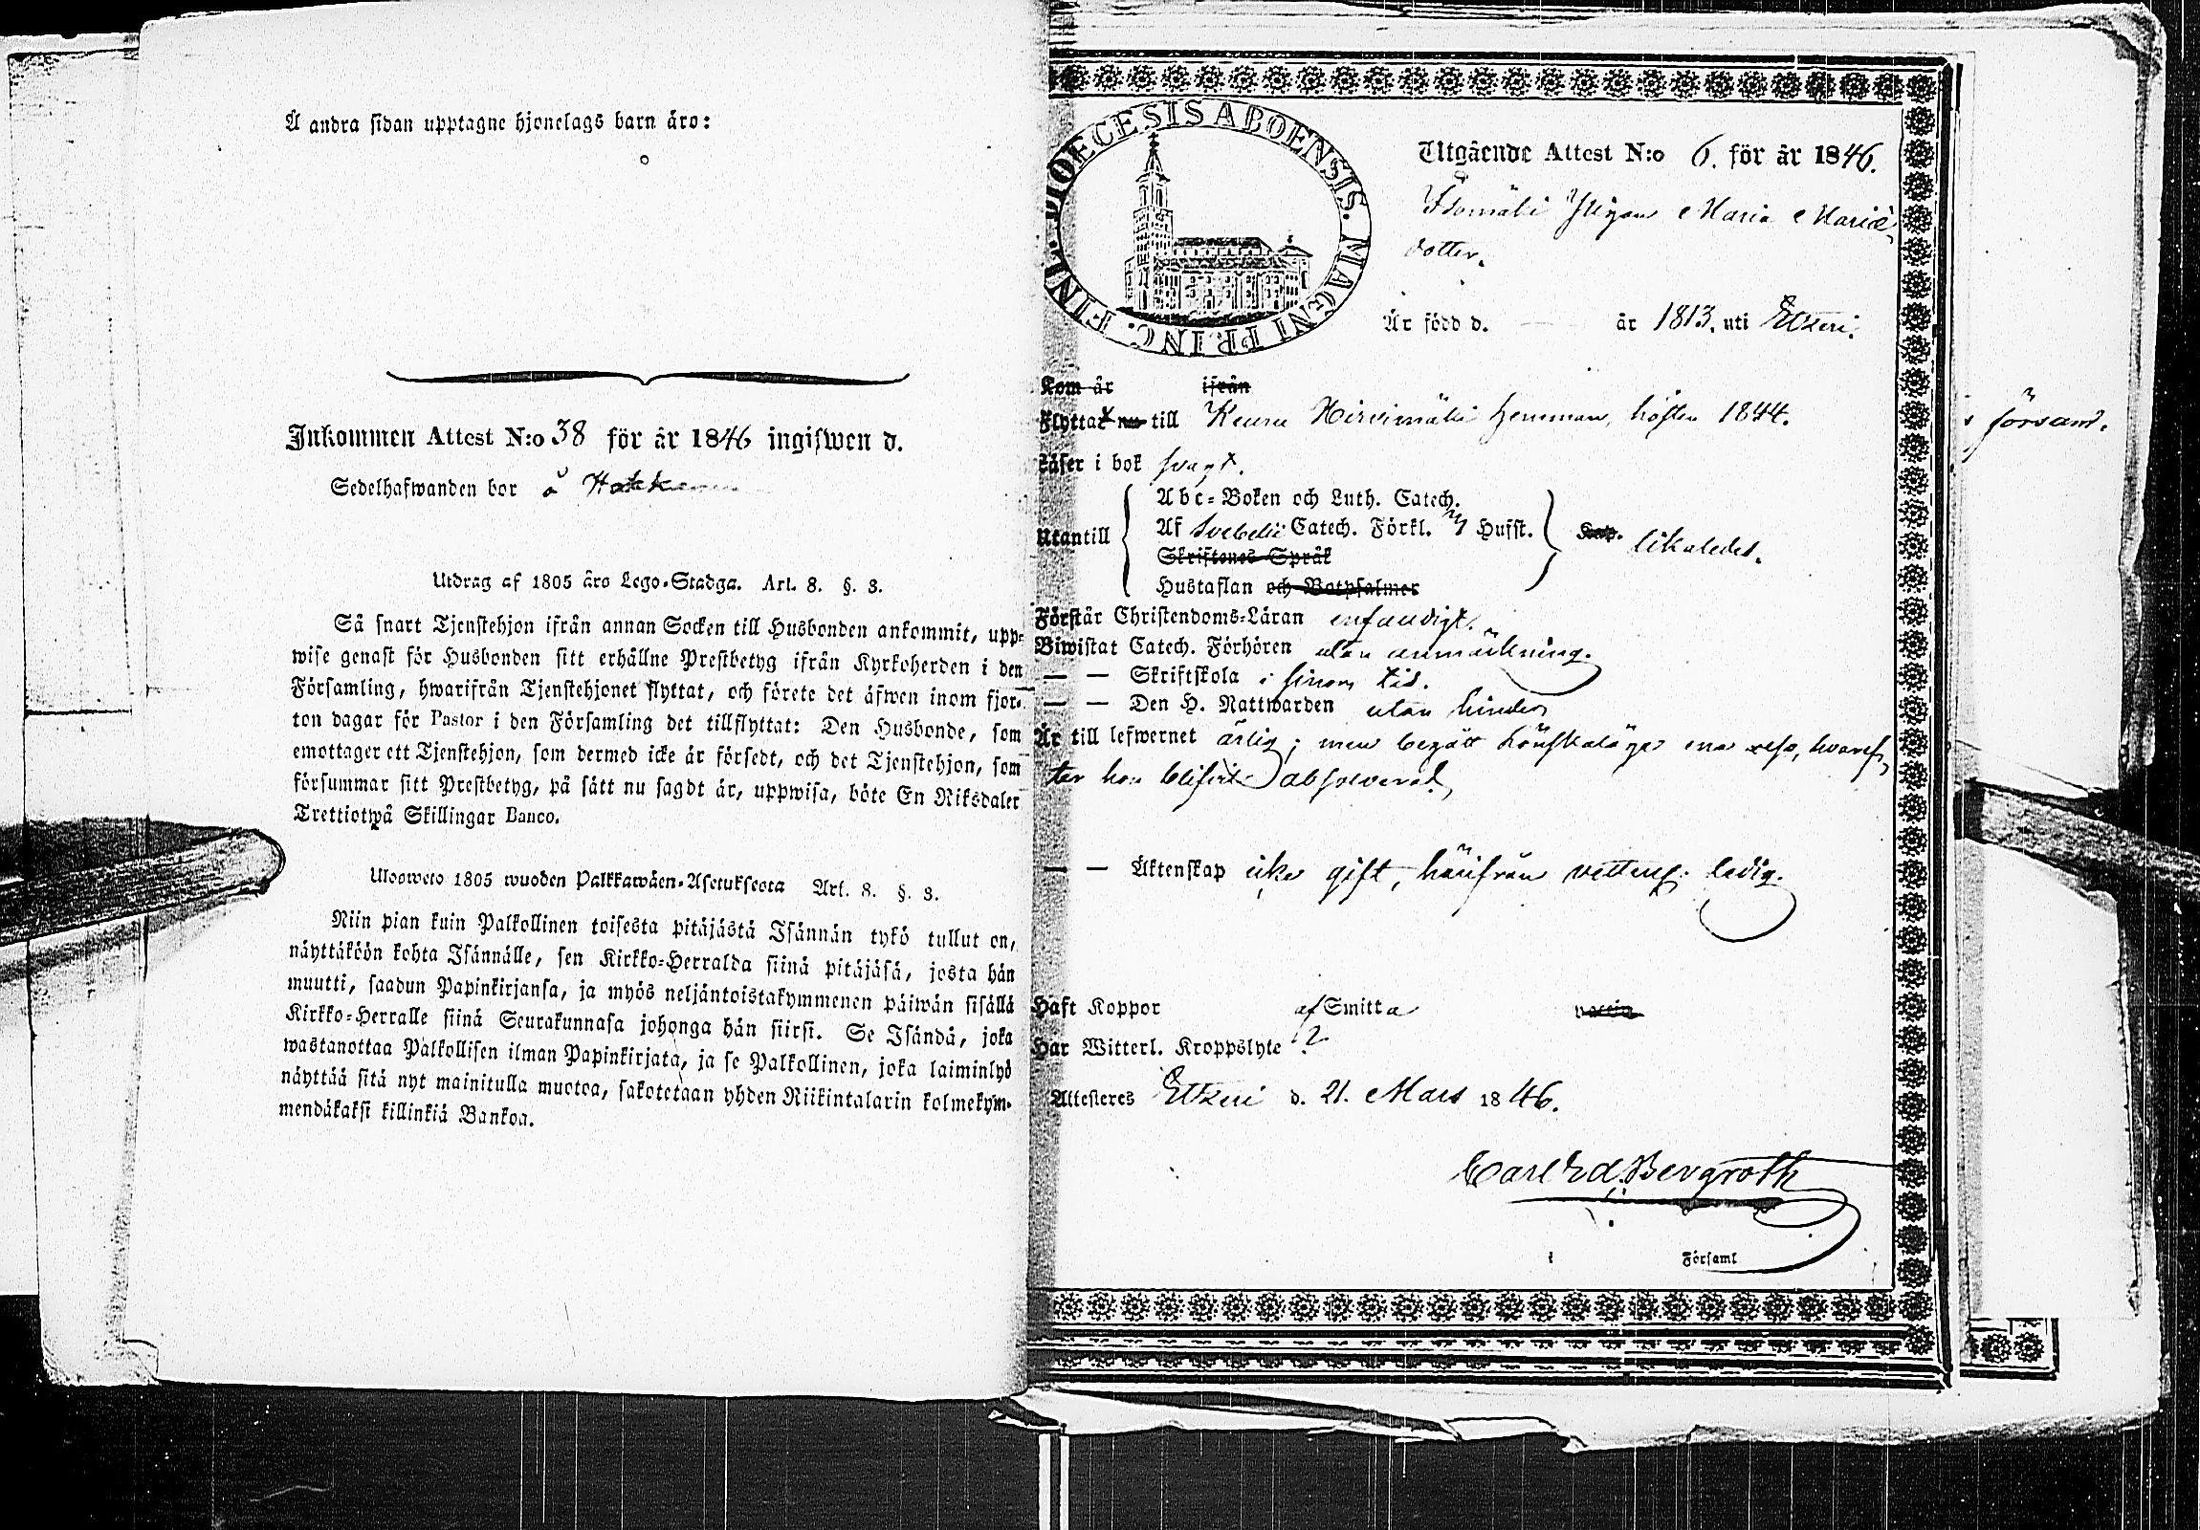 Å andra sidan upptagne hjonelags barn äro:
Inkommen Attest N:o 38 för år 1846 ingifwen d.
Sedelhafwanden bor å
Utdrag af 1805 års Lego-Stadga. Art. 8. §. 3.
Så snart Tjenstehjon ifrån annan Socken till Husbonden ankommit, upp-
wise genast för Husbonden sitt erhållne Prestbetyg ifrån Kyrkoherden i den
Församling, hwarifrån Tjenstehjonet flyttat, och förete det äfwen inom fjor-
ton dagar för Pastor i den Församling det tillflyttat: Den Husbonde, som
emottager ett Tjenstehjon, som dermed icke är försedt, och det Tjenstehjon, som
försummar sitt Prestbetyg, på sätt nu sagdt är, uppwisa, böte En Riksdaler
Trettiotwå Skillingar Banco.
Ulosweto 1805 wuoden Palkkawäen-Asetuksesta Art. 8. §. 3.
Niin pian kuin Palkollinen toisesta pitäjästä Isännän tykö tullut on,
näyttäköön kohta Isännälle, sen Kirkko-Herralda siinä pitäjäsä, josta hän
muutti, saadun Papinkirjansa, ja myös neljäntoistakymmenen päiwän sisällä
Kirkko-Herralle siinä Seurakunnasa johonga hän siirsi. Se Isändä, joka
wastanottaa Palkollisen ilman Papinkirjata, ja se Palkollinen, joka laiminlyö
näyttää sitä nyt mainitulla muotoa, sakotetaan yhden Riikintalarin kolmekym-
mendäkaksi killinkiä Bankoa.
FINL. DIOECESIS ABOENSIS. MAGNI PRINC.
Utgående Attest N:o 6. för år 1846.
Pigan Maria Mariæ
dotter.
Är född d. — år 1813. uti Etseri.
Kom år ifrån
Flyttat nu till Keuru Hirvimäki hemman, hösten 1844.
Läser i bok svagt.
Utantill
Abc-Boken och Luth. Catech.
Af Svebelii Catech. Förkl. Hufst.
Skriftenes Språk
Hustaflan och Botpsalmer
likaledes.
Förstår Christendoms-Läran enfaldigt.
Biwistat Catech. Förhören utan anmärkning.
— — Skriftskola i sinom tid.
— — Den H. Nattwarden utan hinder
Är till lefwernet ärlig; men begått lönskaläger ena resa, hvaref-
ter hon blifvit absolverad.
— — Äktenskap icke gift, härifrån ledig.
Haft Koppor af Smitta
Har Witterl. Kroppslyte ?
Attesteres Etseri d. 21. Mars 1846.
Carl Ed. Bergroth
i Församl
församl.